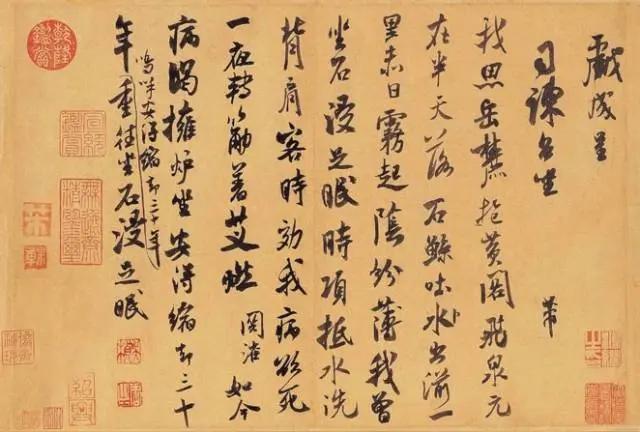 戲成呈
司諫台坐
芾
我思岳麓抱黃閣飛泉元
在半天落石鯨吐水出湔一
里赤日霧起陰紛薄我曾
坐石浸足眠時項抵水洗
背肩客時効我病欲死
一夜轉筋著艾燃 關灌 如今
病渴擁爐坐安得縮却三十
嗚呼安得縮却三十年
年重往坐石浸足眠
乾隆鑑賞